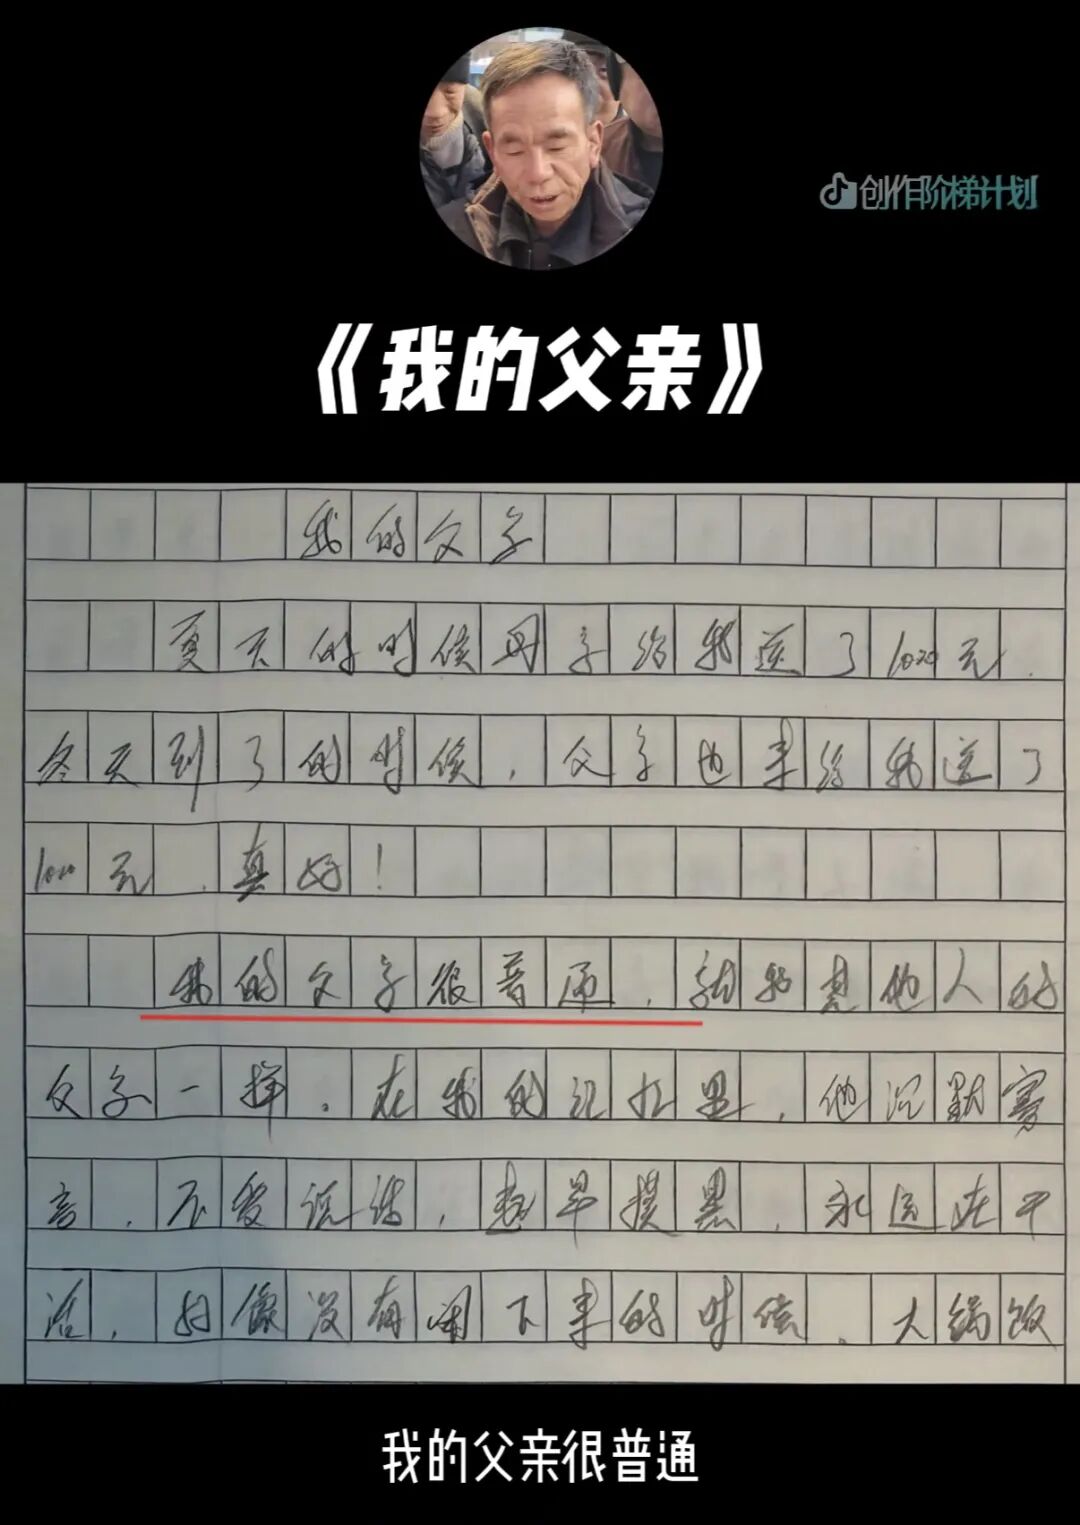 创作阶梯计划
《我的父亲》
我的父亲
夏天的时候母亲给我送了1000元.
冬天到了的时候,父亲也来给我送了
1000元.真好!
我的父亲很普通,就和其他人的
父亲一样.在我的记忆里,他沉默寡
言,不爱说话,起早摸黑,永远在干
活,好像没有闲下来的时候.大锅饭
我的父亲很普通